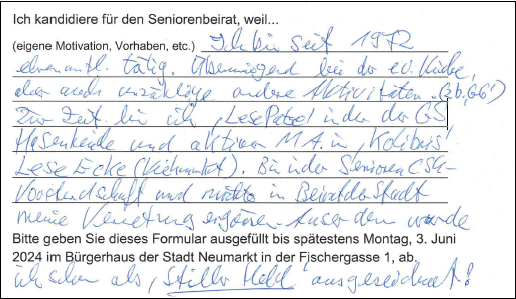 Ich kandidiere für den Seniorenbeirat, weil...
(eigene Motivation, Vorhaben, etc.) Ich bin seit 1972
ehrenamtl. tätig. Überwiegend bei der ev. Kirche,
aber auch unzählige andere Aktivitäten. (z.b,
Zur Zeit bin ich "LesePate" in der GS
Hasenheide und aktiver M.A. in "Kolibus"
LeseEcke (Viehmarkt). Bin in der Senioren CSU-
Vorstandschaft und möchte in Beirat der Stadt
meine Vernetzung ergänzen. Ausserdem wurde
Bitte geben Sie dieses Formular ausgefüllt bis spätestens Montag, 3. Juni
2024 im Bürgerhaus der Stadt Neumarkt in der Fischergasse 1, ab.
ich schon als "Stiller Held" ausgezeichnet!